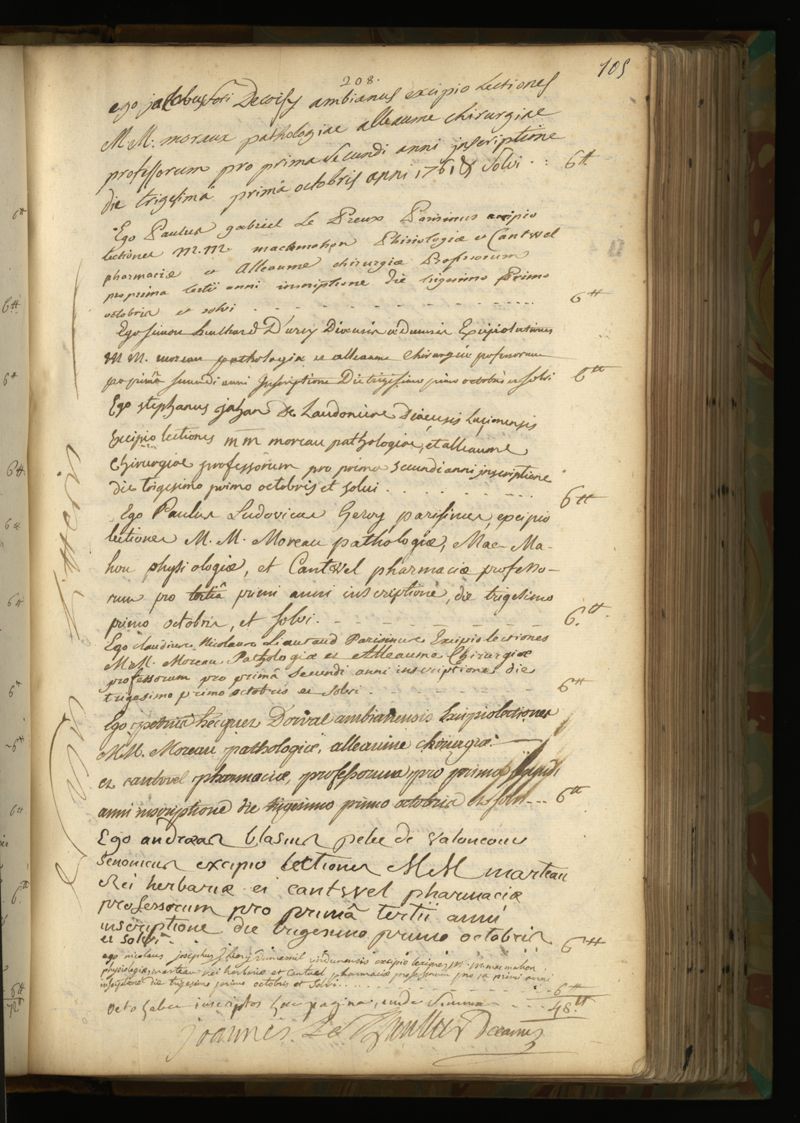 208.
105
ego jacobus Decoisy ambianus excipio lectiones
M.M. moreau pathologiae alleaume chirurgiae
professorum pro prima secundi anni inscriptione
die trigesimâ primâ octobris anni 1761 & solvi . : 6 ₶
Ego Paulus gabriel Le Preux Parisinus excipio
lectiones M.M. mackmahon Phisiologiæ et Cantwel
pharmaciæ et Alleaume chirurgiæ Professorum
pro prima tertii anni inscriptione die trigesimo Primo
octobris et solvi . 6 ₶
Ego simon D'urvy Excipio lectiones
M M. moreau pathologiæ et alleaume chirurgiæ professorum
pro primâ secundi anni Inscriptione Die trigesimo primo octobris et solvi 6 ₶
Ego stephanus jahan De Laudoniere
Excipio lectiones m m moreau pathologiae, et alleaume
Chirurgiae professorum pro prima secundi anni inscriptione
die trigesimo primo octobris et solvi . 6 ₶
Ego Paulus Ludovicus Gervy parisinus, excipio
lectiones M. M. Moreau pathologiæ, Mac-Ma-
hon physiologiæ, et Cantwel pharmaciæ professo-
rum pro tertiâ primi anni inscriptione, die trigesimo
primo octobris, et solvi. 6. ₶
Ego claudius Nicolaus Parisinus Excipio lectiones
M.M. Moreau Pathologiæ et Alleaume Chirurgiæ
professorum pro primâ secundi anni inscriptione die
trigesimo primo octobris et solvi . 6 ₶
Ego petrus hecquet ambianensis Excipio lectiones
M.M. Moreau pathologiæ, alleaume chirurgiæ
et cantwel pharmaciæ, professorum pro prima
anni inscriptione die trigesimo primo octobris et solvi --- 6 ₶
Ego andreas blasius pelee de valoncour
Senonicus excipio lectiones M M marteau
Rei herbariæ et cantwel pharmaciæ
professorum pro primâ tertii anni
inscriptione die trigesimo primo octobris
et solvi - 6 ₶
ego nicolaus josephus excipio lectiones M. M. macmahon
physiologiæ, marteau rei herbariæ et Cantwel pharmaciæ professorum pro primi anni
inscriptione die trigesimo primo octobris et solvi . 6 ₶
octo habet inscriptos hæc pagina, unde summa 48. ₶
joannes Le Thieullier Decanus